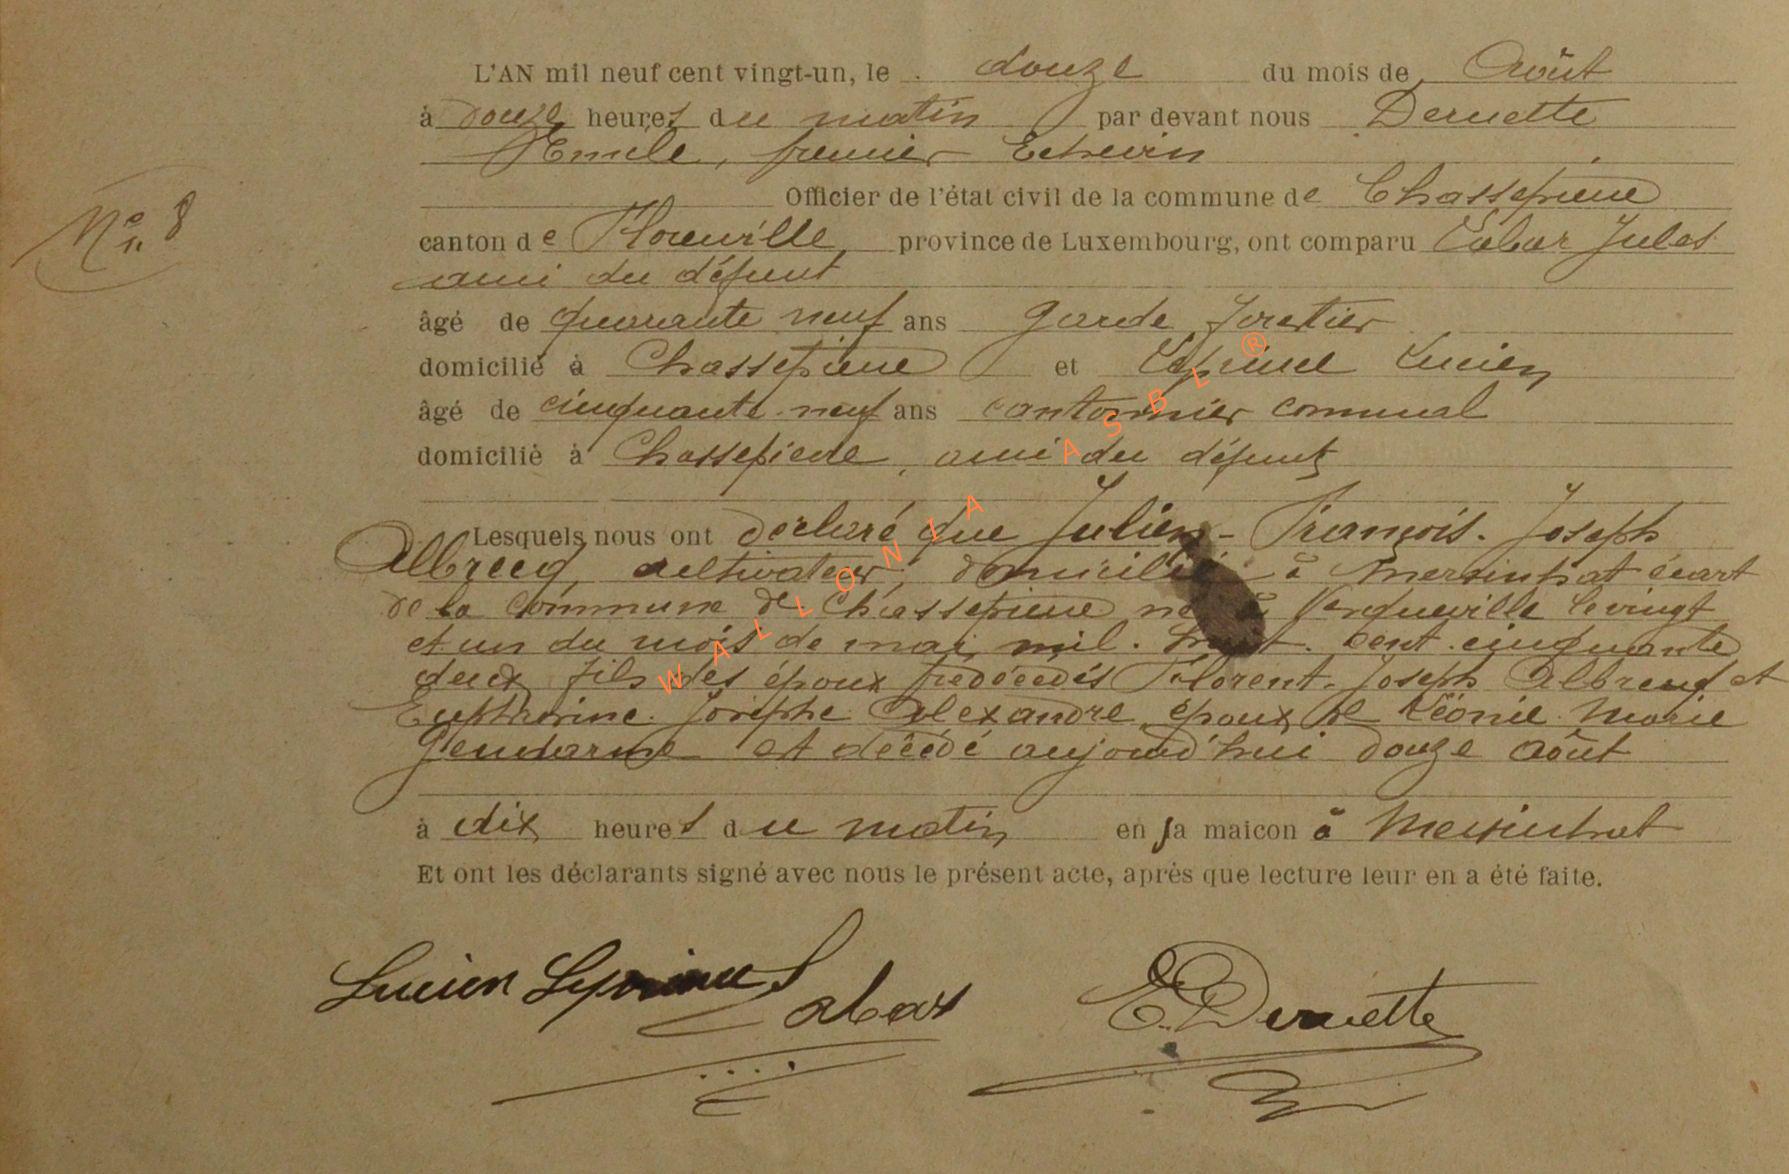 L'AN mil neuf cent vingt-un, le douze du mois de Août
à douze heures du matin par devant nous Deruette
Emile, premier Echevin
Officier de l'état civil de la commune de Chassepierre
N° 8
canton de Florenville, province de Luxembourg, ont comparu Labar Jules
ami du défunt
âgé de quarante neuf ans garde forestier
domicilié à Chassepierre et Leprince Lucien
âgé de cinquante neuf ans cantonnier communal
domicilié à Chassepierre, ami du défunt
Lesquels nous ont déclaré que Julien-François-Joseph
Albrecq, cultivateur, domicilié à Mersinhat écart
de la commune de Chassepierre né à le vingt
et un du mois de mai mil-huit-cent-cinquante
deux fils des époux prédécédés Florent-Joseph Albrecq et
Josèphe Alexandre, époux de Léonie-Marie
Gendarme est décédé aujourd'hui douze août
à dix heures du matin en sa maicon à Mersinhat
Et ont les déclarants signé avec nous le présent acte, après que lecture leur en a été faite.
Lucien Leprince Labar E. Deruette
WALLONIA ASBL ®